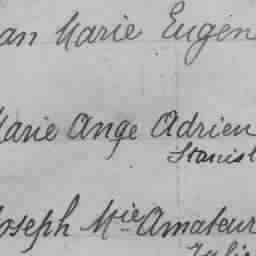 an Marie Eugen
Marie Ange Adrien
Stanisl
Joseph Mie Amateur
Julie